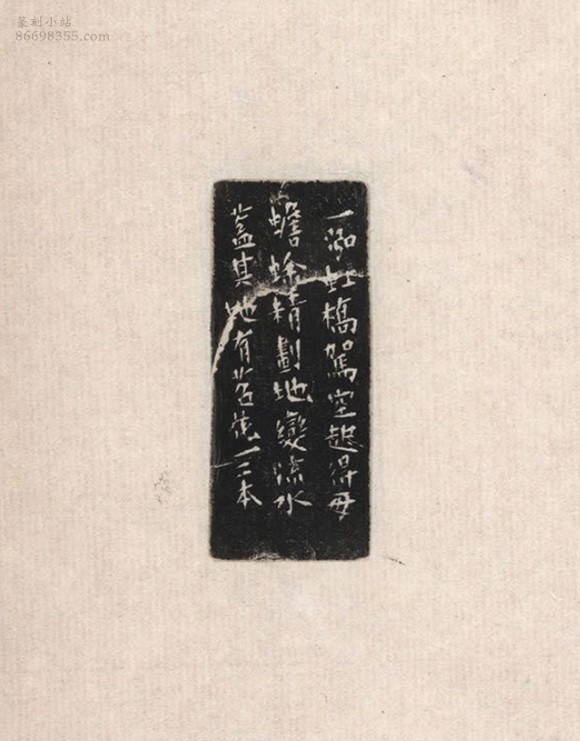 篆刻小站
86698355.com
一泓虹橋駕空起得毋
蟾蜍精劃地變流水
蓋其地有茗花一二本